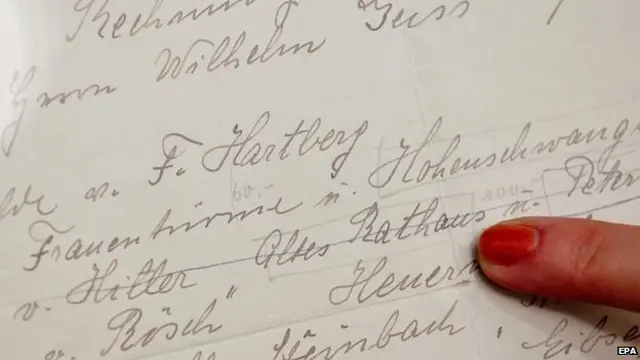 Rechnung
Herrn Wilhelm Geiss
v. F. Hartberg
Frauentürme u. Hohenschwang
60.- 100.-
v. Hitler Altes Rathaus u. Peter
" Rösch" Heuer
Steinbach,
EPA